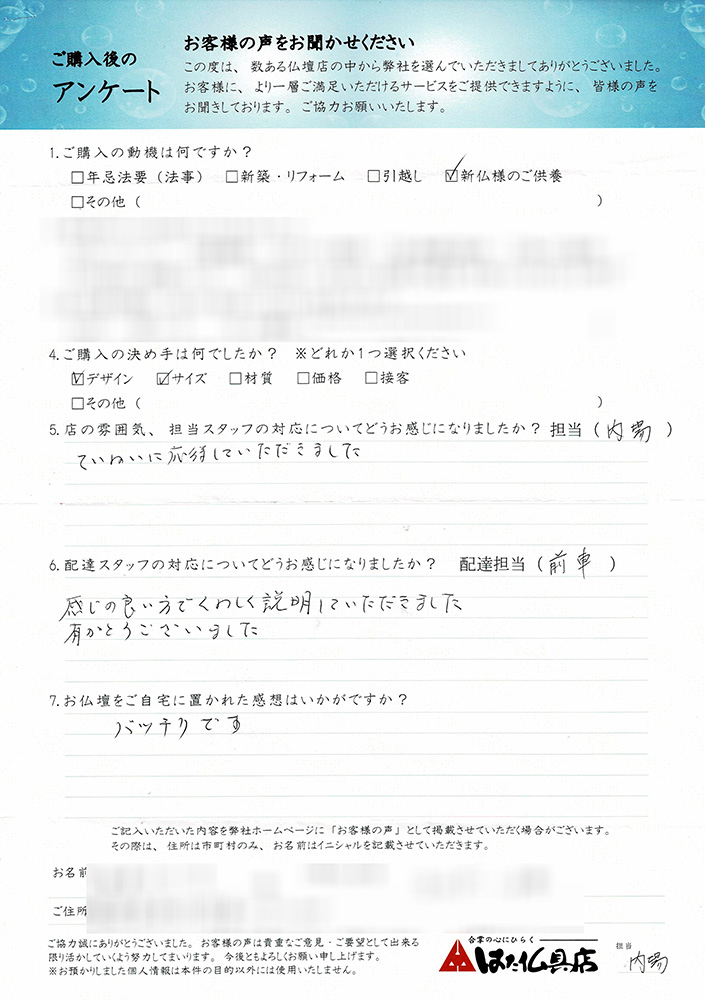 ご購入後の
アンケート
お客様の声をお聞かせください
この度は、数ある仏壇店の中から弊社を選んでいただきましてありがとうございました。
お客様に、より一層ご満足いただけるサービスをご提供できますように、皆様の声を
お聞きしております。ご協力お願いいたします。
1.ご購入の動機は何ですか？
□年忌法要（法事） □新築・リフォーム □引越し ☑新仏様のご供養
□その他（ ）
4.ご購入の決め手は何でしたか？ ※どれか1つ選択ください
☑デザイン ☑サイズ □材質 □価格 □接客
□その他（ ）
5.店の雰囲気、担当スタッフの対応についてどうお感じになりましたか？担当（内場）
ていねいに応待していただきました
6.配達スタッフの対応についてどうお感じになりましたか？ 配達担当（前車）
感じの良い方でくわしく説明していただきました
有がとうございました
7.お仏壇をご自宅に置かれた感想はいかがですか？
バッチリです
ご記入いただいた内容を弊社ホームページに「お客様の声」として掲載させていただく場合がございます。
その際は、住所は市町村のみ、お名前はイニシャルを記載させていただきます。
お名前
ご住所
ご協力誠にありがとうございました。お客様の声は貴重なご意見・ご要望として出来る
限り活かしていくよう努力してまいります。今後ともよろしくお願い申し上げます。
※お預かりしました個人情報は本件の目的以外には使用いたしません。
合掌の心にひらく
はた仏具店
担当
内場